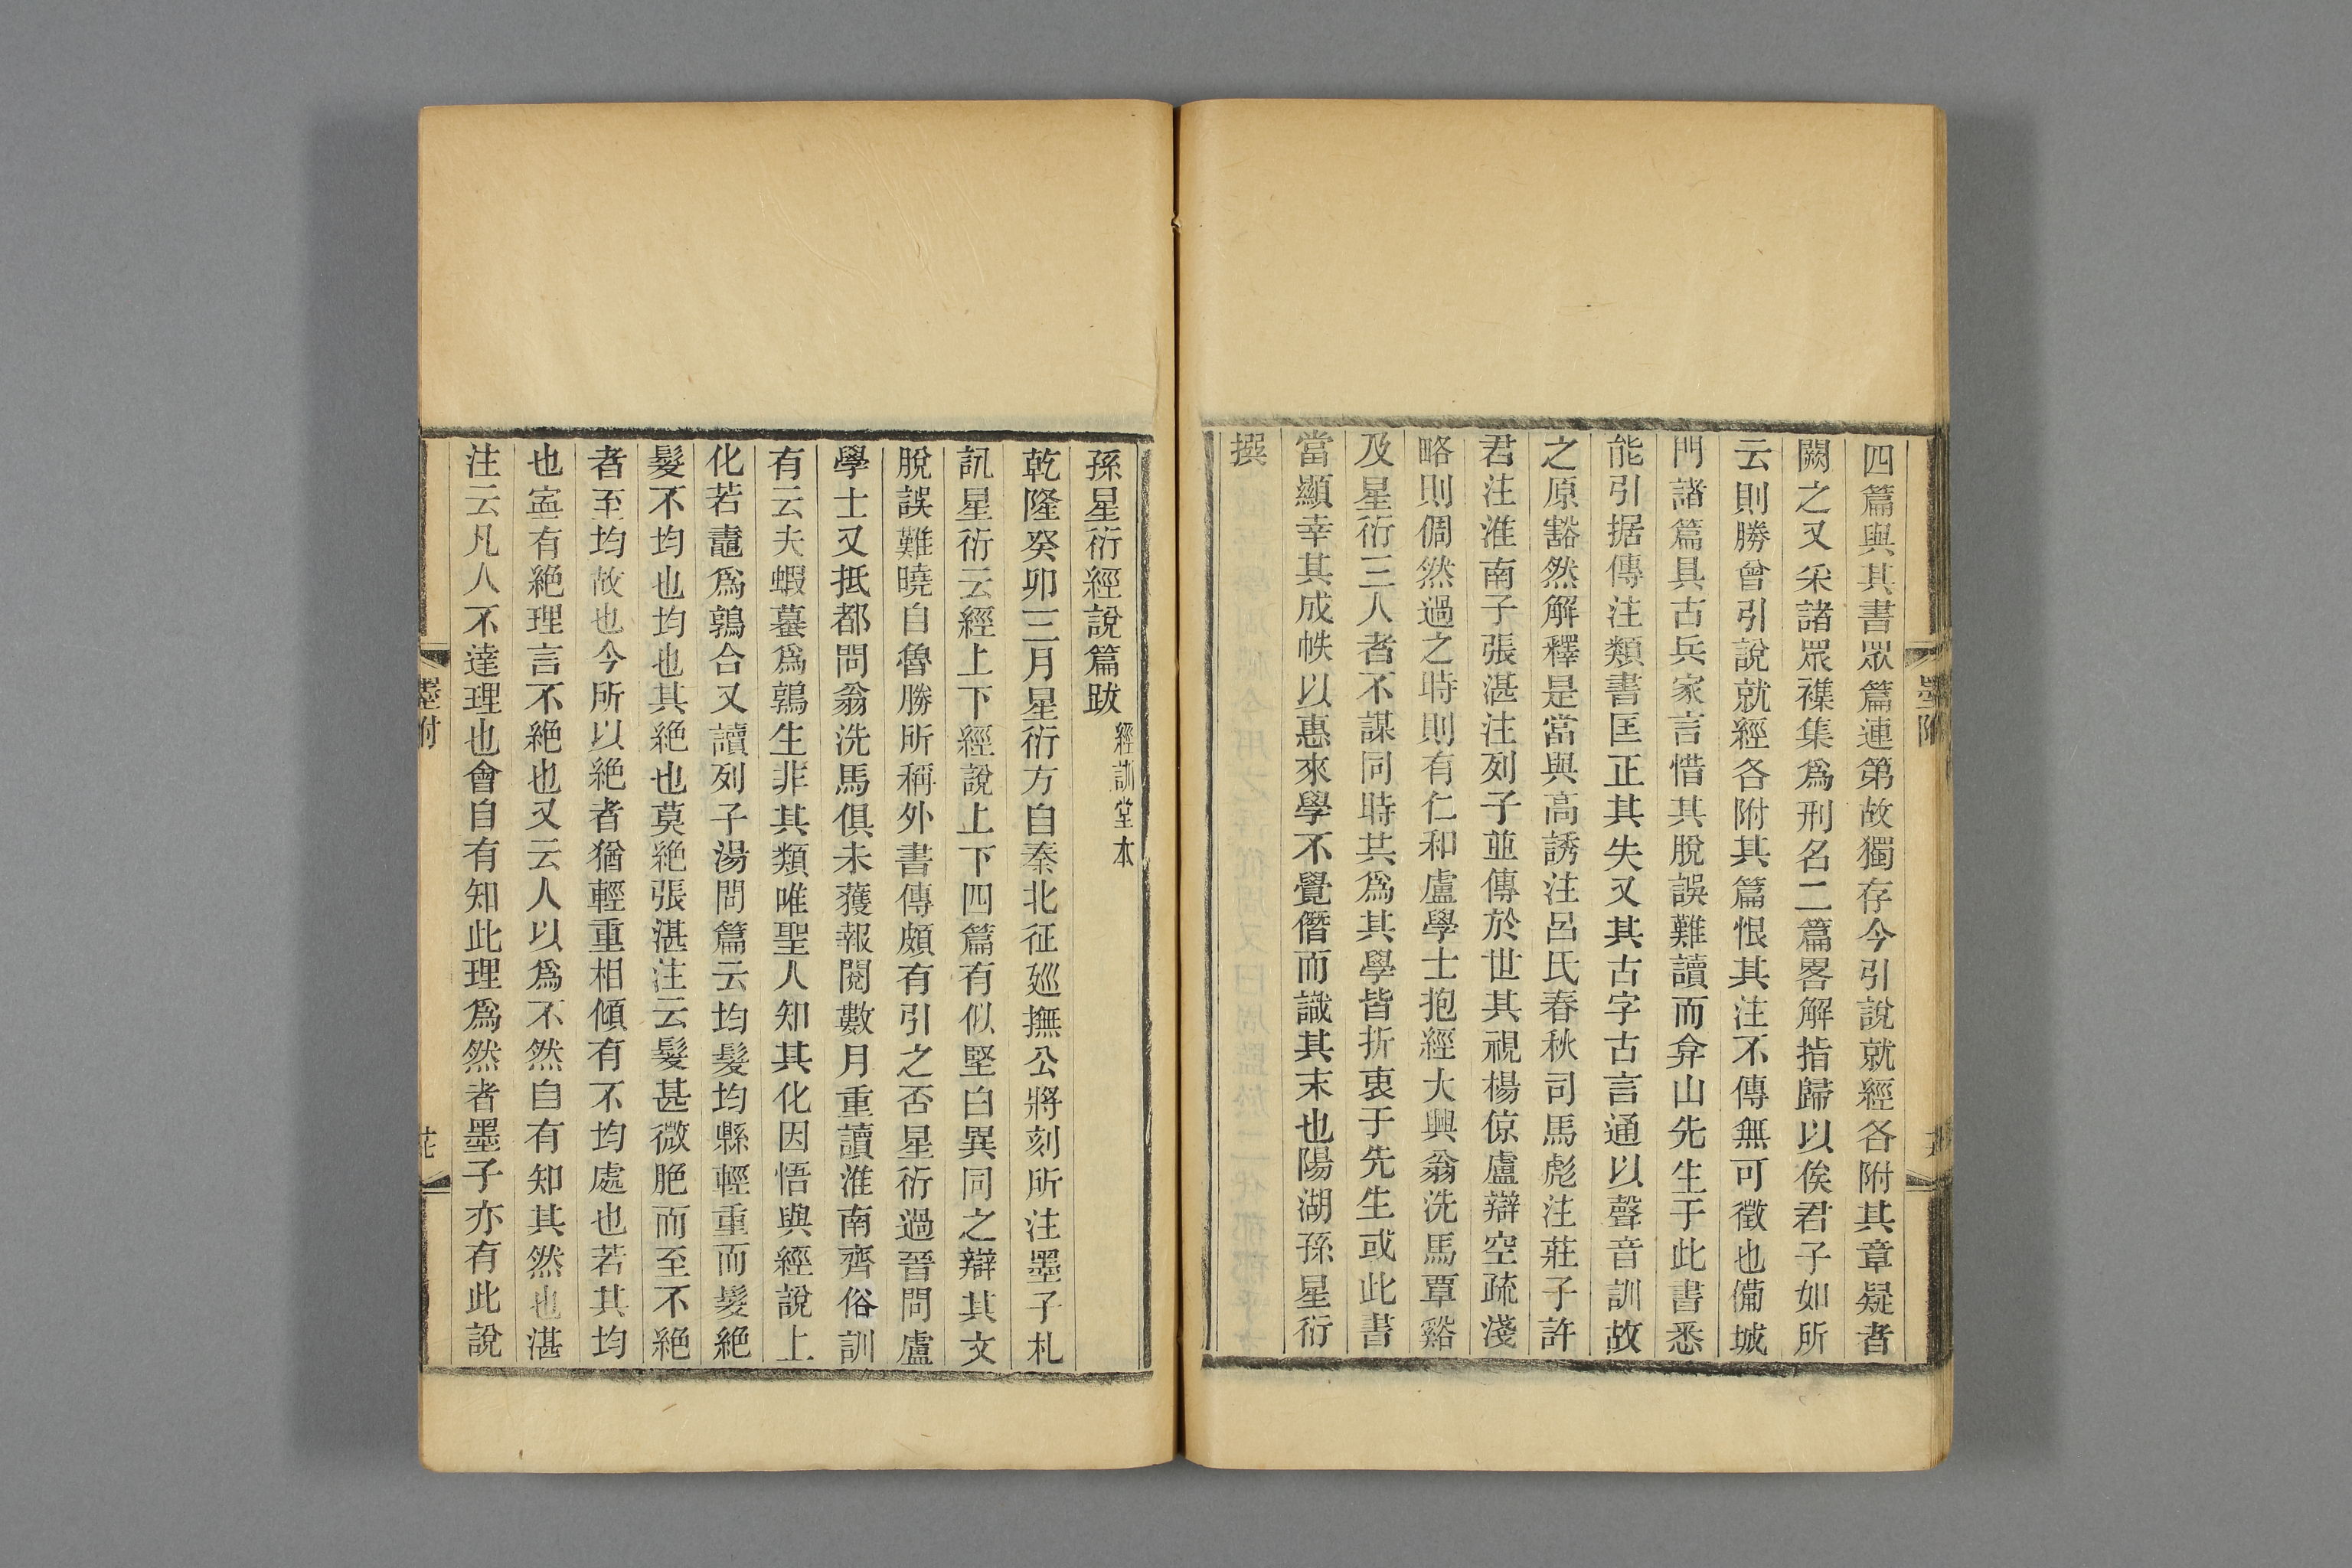 四篇與其書眾篇連第故獨存今引說就經各附其章疑者
闕之又采諸眾襍集爲刑名二篇畧解指歸以俟君子如所
云則勝曾引說就經各附其篇恨其注不傳無可徵也備城
門諸篇具古兵家言惜其脫誤難讀而弇山先生于此書悉
能引据傳注類書匡正其失又其古字古言通以聲音訓故
之原豁然解釋是當與高誘注呂氏春秋司馬彪注莊子許
君注淮南子張湛注列子並傳於世其視楊倞盧辯空疏淺
略則倜然過之時則有仁和盧學士抱經大興翁洗馬覃谿
及星衍三人者不謀同時共爲其學皆折衷于先生或此書
當顯幸其成帙以惠來學不覺僭而識其末也陽湖孫星衍
撰
孫星衍經說篇跋 經訓堂本
乾隆癸卯三月星衍方自秦北征廵撫公將刻所注墨子札
訊星衍云經上下經說上下四篇有似堅白異同之辯其文
脫誤難曉自魯勝所稱外書傳頗有引之否星衍過晉問盧
學士又抵都問翁洗馬俱未獲報閱數月重讀淮南齊俗訓
有云夫蝦蟇爲鶉生非其類唯聖人知其化因悟與經說上
化若鼃爲鶉合又讀列子湯問篇云均髮均縣輕重而髮絕
髮不均也均也其絕也莫絕張湛注云髮甚微脃而至不絕
者至均故也今所以絕者猶輕重相傾有不均處也若其均
也寍有絕理言不絕也又云人以爲不然自有知其然也湛
注云凡人不達理也會自有知此理爲然者墨子亦有此說
墨附